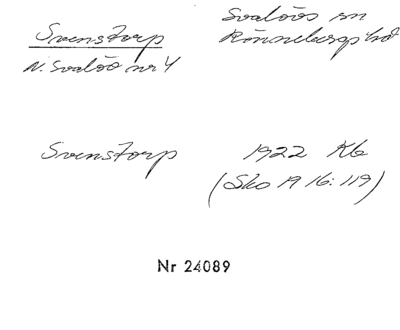 Svenstorp
Svalövs sn
Rönnebergs hd
N. Svalöv nr 4
Svenstorp
1922 Kb
(Sko 19 16:119)
Nr 24089